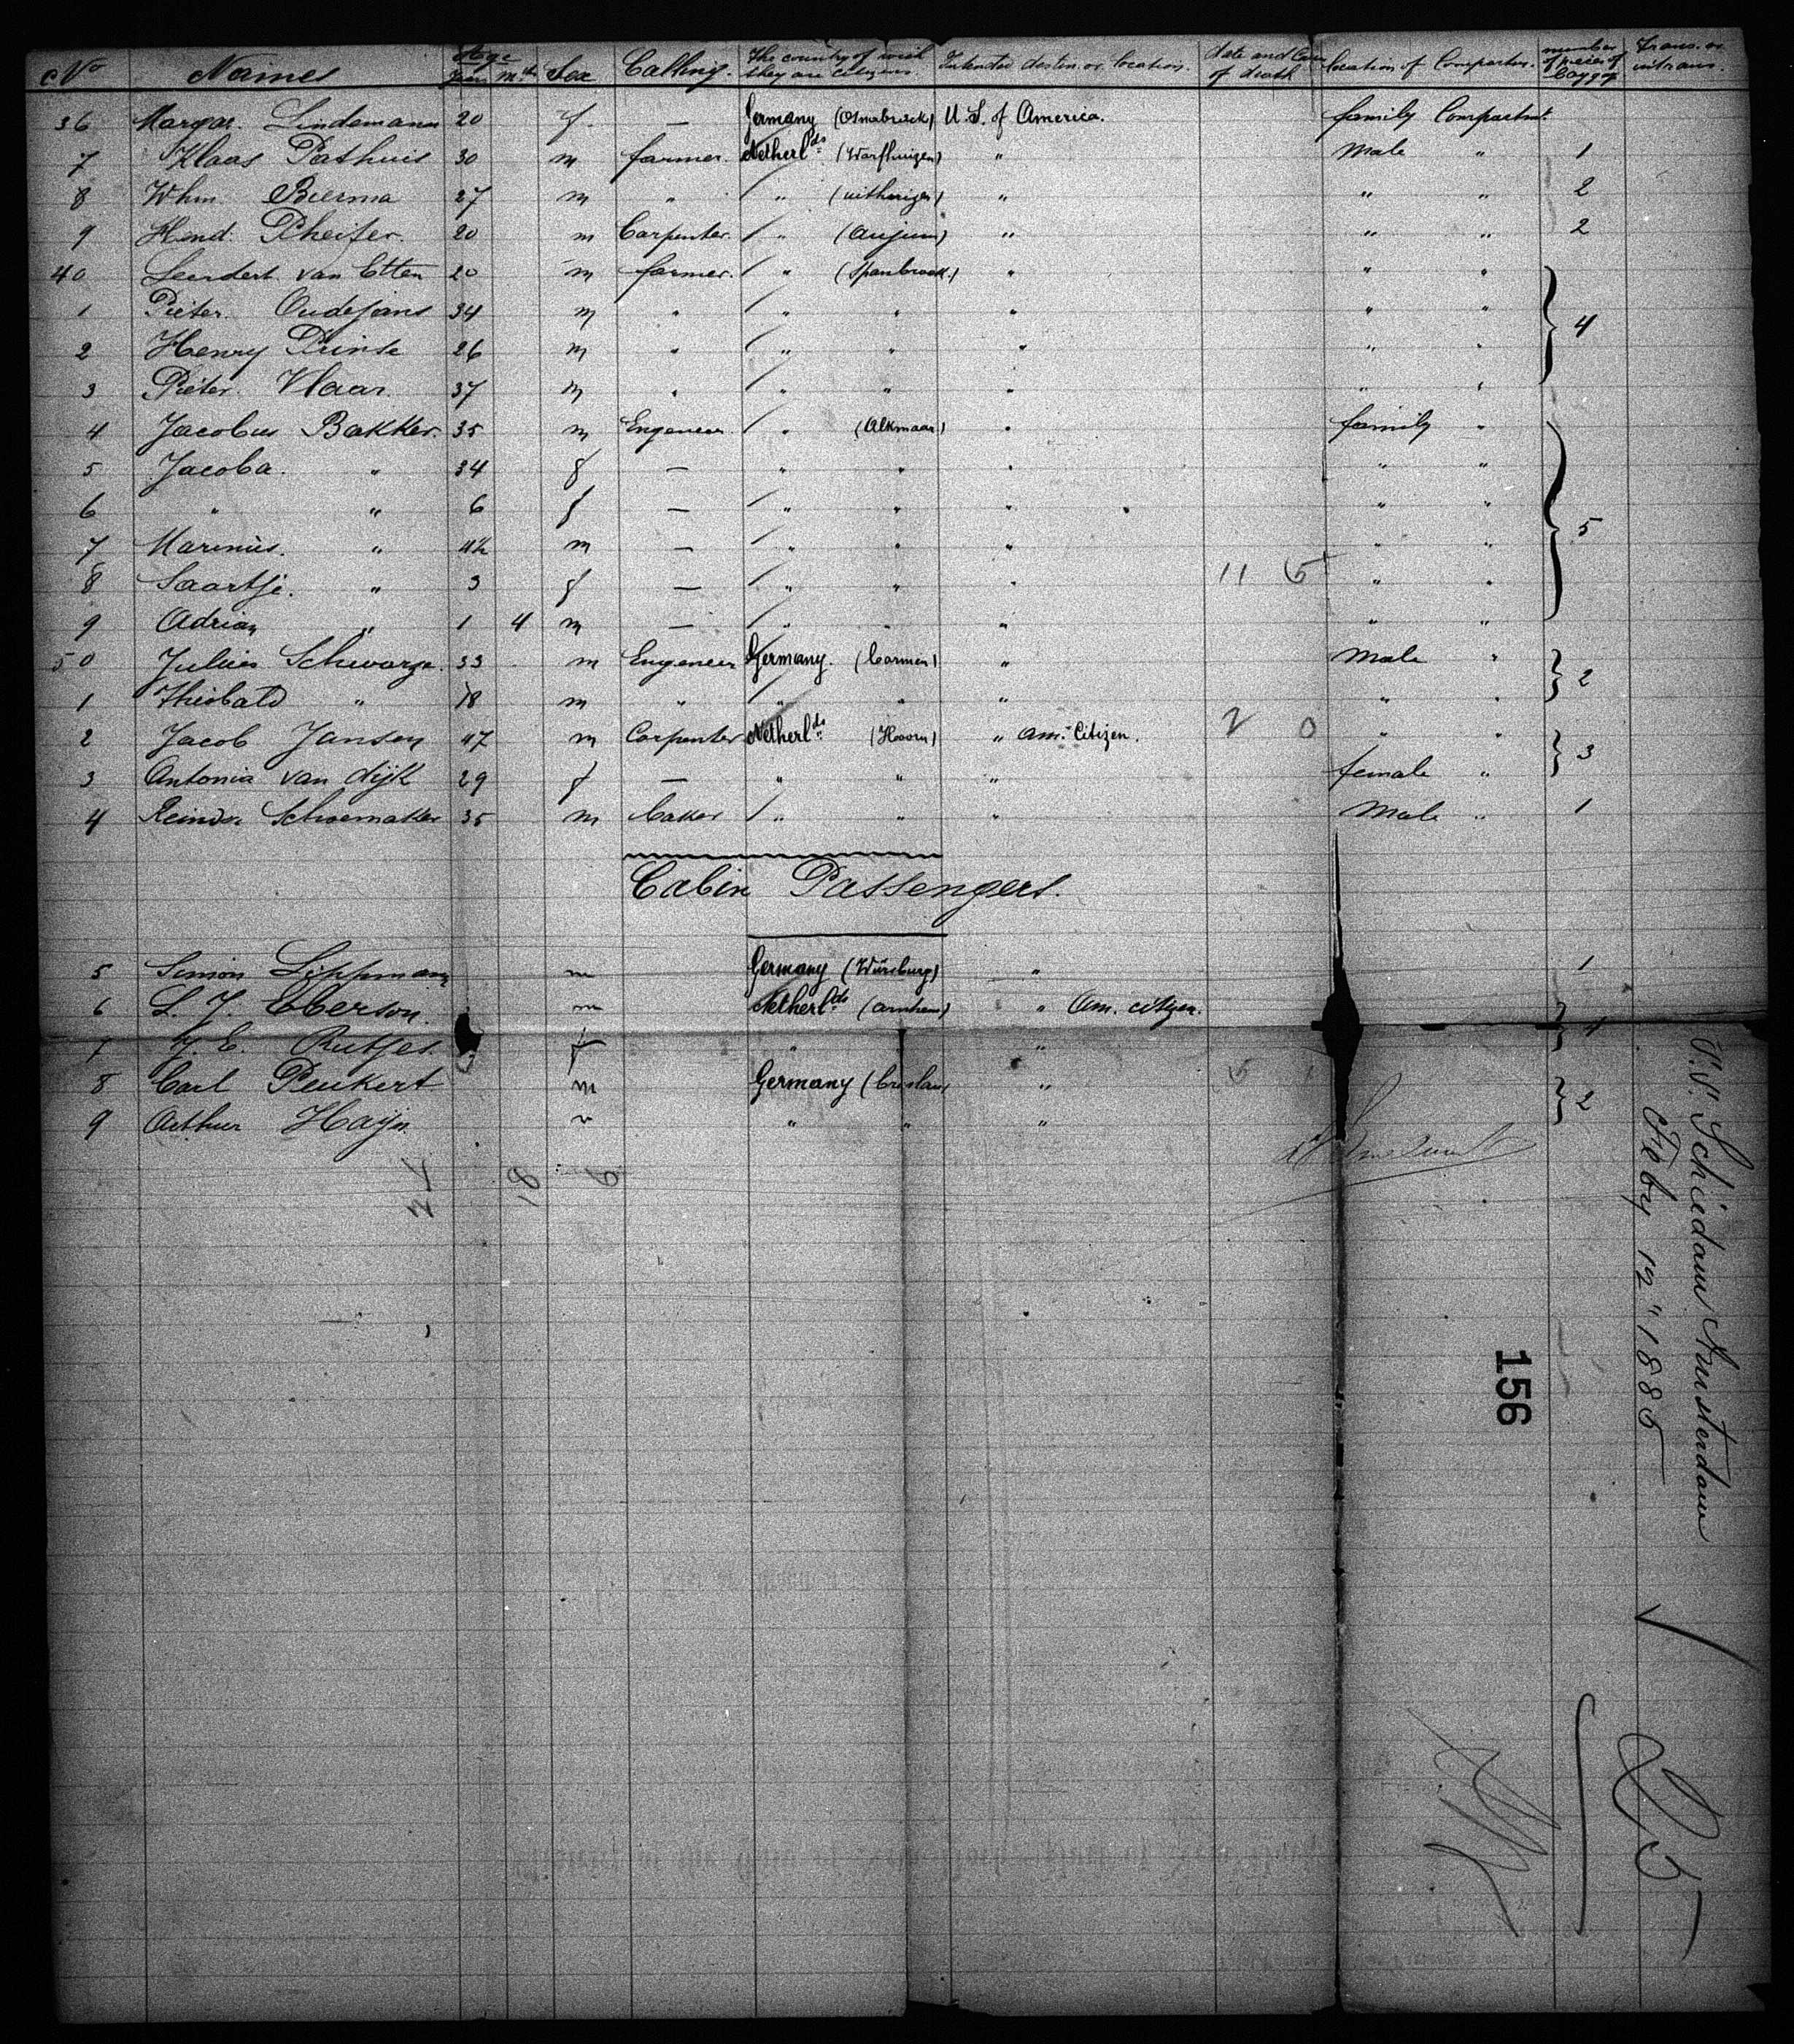 No Names Age Years Mth Sex Calling. The country of wich they are citizens Intended destin. or location. date and Cause of death location of Compartm. number of pieces of baggage Trans. or intrans.
36 Margar. Lindemann 20 f — Germany (Osnabrück) U. S. of America. family Compartmt.
7 Klaas Pathuis 30 m farmer. Netherlds (Warfhuizen) " Male " 1
8 Whm Bierma 27 m " " (uithuizen) " " " 2
9 Hend. Pheifer. 20 m Carpenter. " (Anjum) " " " 2
40 Leendert van Etten 20 m farmer. " (Spanbroek.) " " "
1 Pieter. Oudejans 34 m " " " " " " 4
2 Henry Prinse 26 m " " " " " "
3 Pieter. Vlaar. 37 m " " " " " "
4 Jacobus Bakker. 35 m Engeneer. " (Alkmaar) " family "
5 Jacoba. " 34 f — " " " " "
6 " " 6 f — " " " " "
7 Marinus. " 4½ m — " " " " " 5
8 Saartje. " 3 f — " " " 11 5 " "
9 Adrian " 1 4 m — " " " " "
50 Julius Schwarze. 33 m Engeneer Germany. (barmen) " Male " 2
1 Thiobald " 18 m " " " " " "
2 Jacob Jansen 47 m Carpenter Netherlds (Hoorn) " Am. Citizen. 2 0 " " 3
3 Antonia van dijk 29 f — " " " female "
4 Reindr. Schoemaker 35 m baker " " " Male " 1
Cabin Passengers.
5 Simon Lippmann m Germany (Würzburg) " 1
6 L. J. Eberson. m Netherlds (arnhem) " Am. citizen. 4
7 J. E. Rutjes. f " " "
8 Carl Peukert m Germany (breslau) " 5 1 2
9 Arthur Hayn. m " " "
21 18 6
S.S. Schiedam Amsterdam
Feby 12" 1885
156